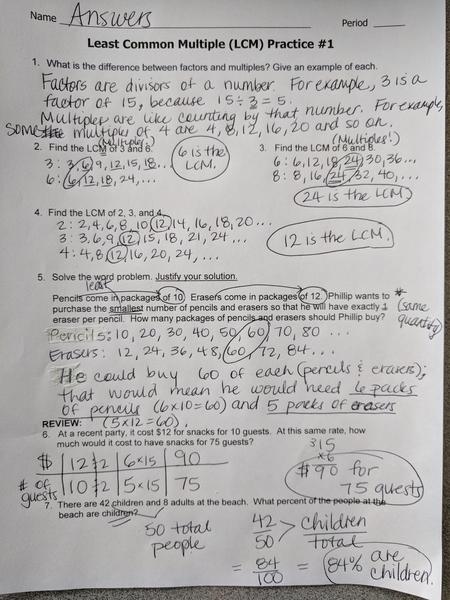 Name Answers Period
Least Common Multiple (LCM) Practice #1
1. What is the difference between factors and multiples? Give an example of each.
Factors are divisors of a number. For example, 3 is a
factor of 15, because 15 ÷ 3 = 5.
Multiples are like counting by that number. For example,
some multiples of 4 are 4, 8, 12, 16, 20 and so on.
(Multiples!)
2. Find the LCM of 3 and 6.
3: 3, 6, 9, 12, 15, 18...
6: 6, 12, 18, 24, ...
6 is the LCM.
(Multiples!)
3. Find the LCM of 6 and 8.
6: 6, 12, 18, 24, 30, 36...
8: 8, 16, 24, 32, 40, ...
24 is the LCM
4. Find the LCM of 2, 3, and 4.
2: 2, 4, 6, 8, 10, 12, 14, 16, 18, 20...
3: 3, 6, 9, 12, 15, 18, 21, 24...
4: 4, 8, 12, 16, 20, 24, ...
12 is the LCM.
5. Solve the word problem. Justify your solution.
least
Pencils come in packages of 10. Erasers come in packages of 12. Phillip wants to
purchase the smallest number of pencils and erasers so that he will have exactly 1
eraser per pencil. How many packages of pencils and erasers should Phillip buy?
* (same quantity)
Pencils: 10, 20, 30, 40, 50, 60, 70, 80 ...
Erasers: 12, 24, 36, 48, 60, 72, 84...
He could buy 60 of each (pencils & erasers);
that would mean he would need 6 packs
of pencils (6x10=60) and 5 packs of erasers
(5x12=60).
REVIEW:
6. At a recent party, it cost $12 for snacks for 10 guests. At this same rate, how
much would it cost to have snacks for 75 guests?
$ 12 ÷2 6 x15 90
# of guests 10 ÷2 5 x15 75
15
x6
$90 for
75 guests
7. There are 42 children and 8 adults at the beach. What percent of the people at the
beach are children?
50 total
people
42/50 > children/total
= 84/100 = 84% are children.